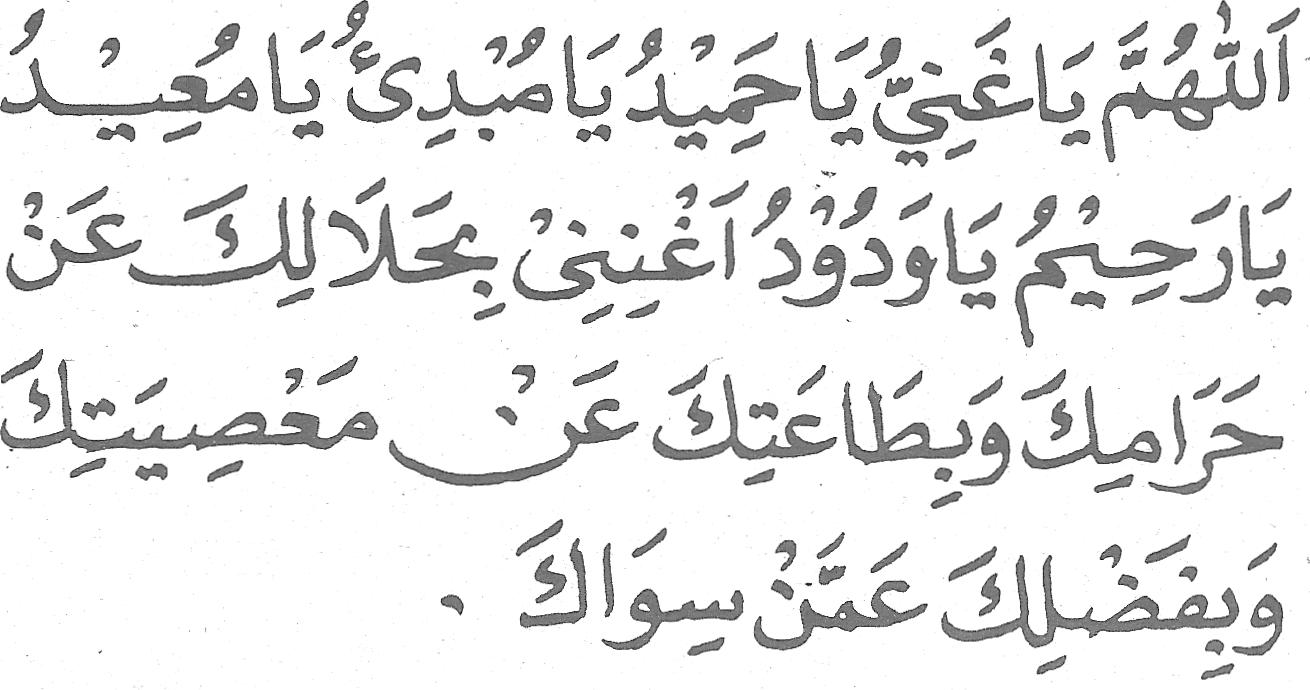 اَللّٰهُمَّ يَا غَنِيُّ يَا حَمِيْدُ يَا مُبْدِئُ يَا مُعِيْدُ
يَا رَحِيْمُ يَا وَدُوْدُ اَغْنِنِىْ بِحَلَالِكَ عَنْ
حَرَامِكَ وَبِطَاعَتِكَ عَنْ مَعْصِيَتِكَ
وَبِفَضْلِكَ عَمَّنْ سِوَاكَ .